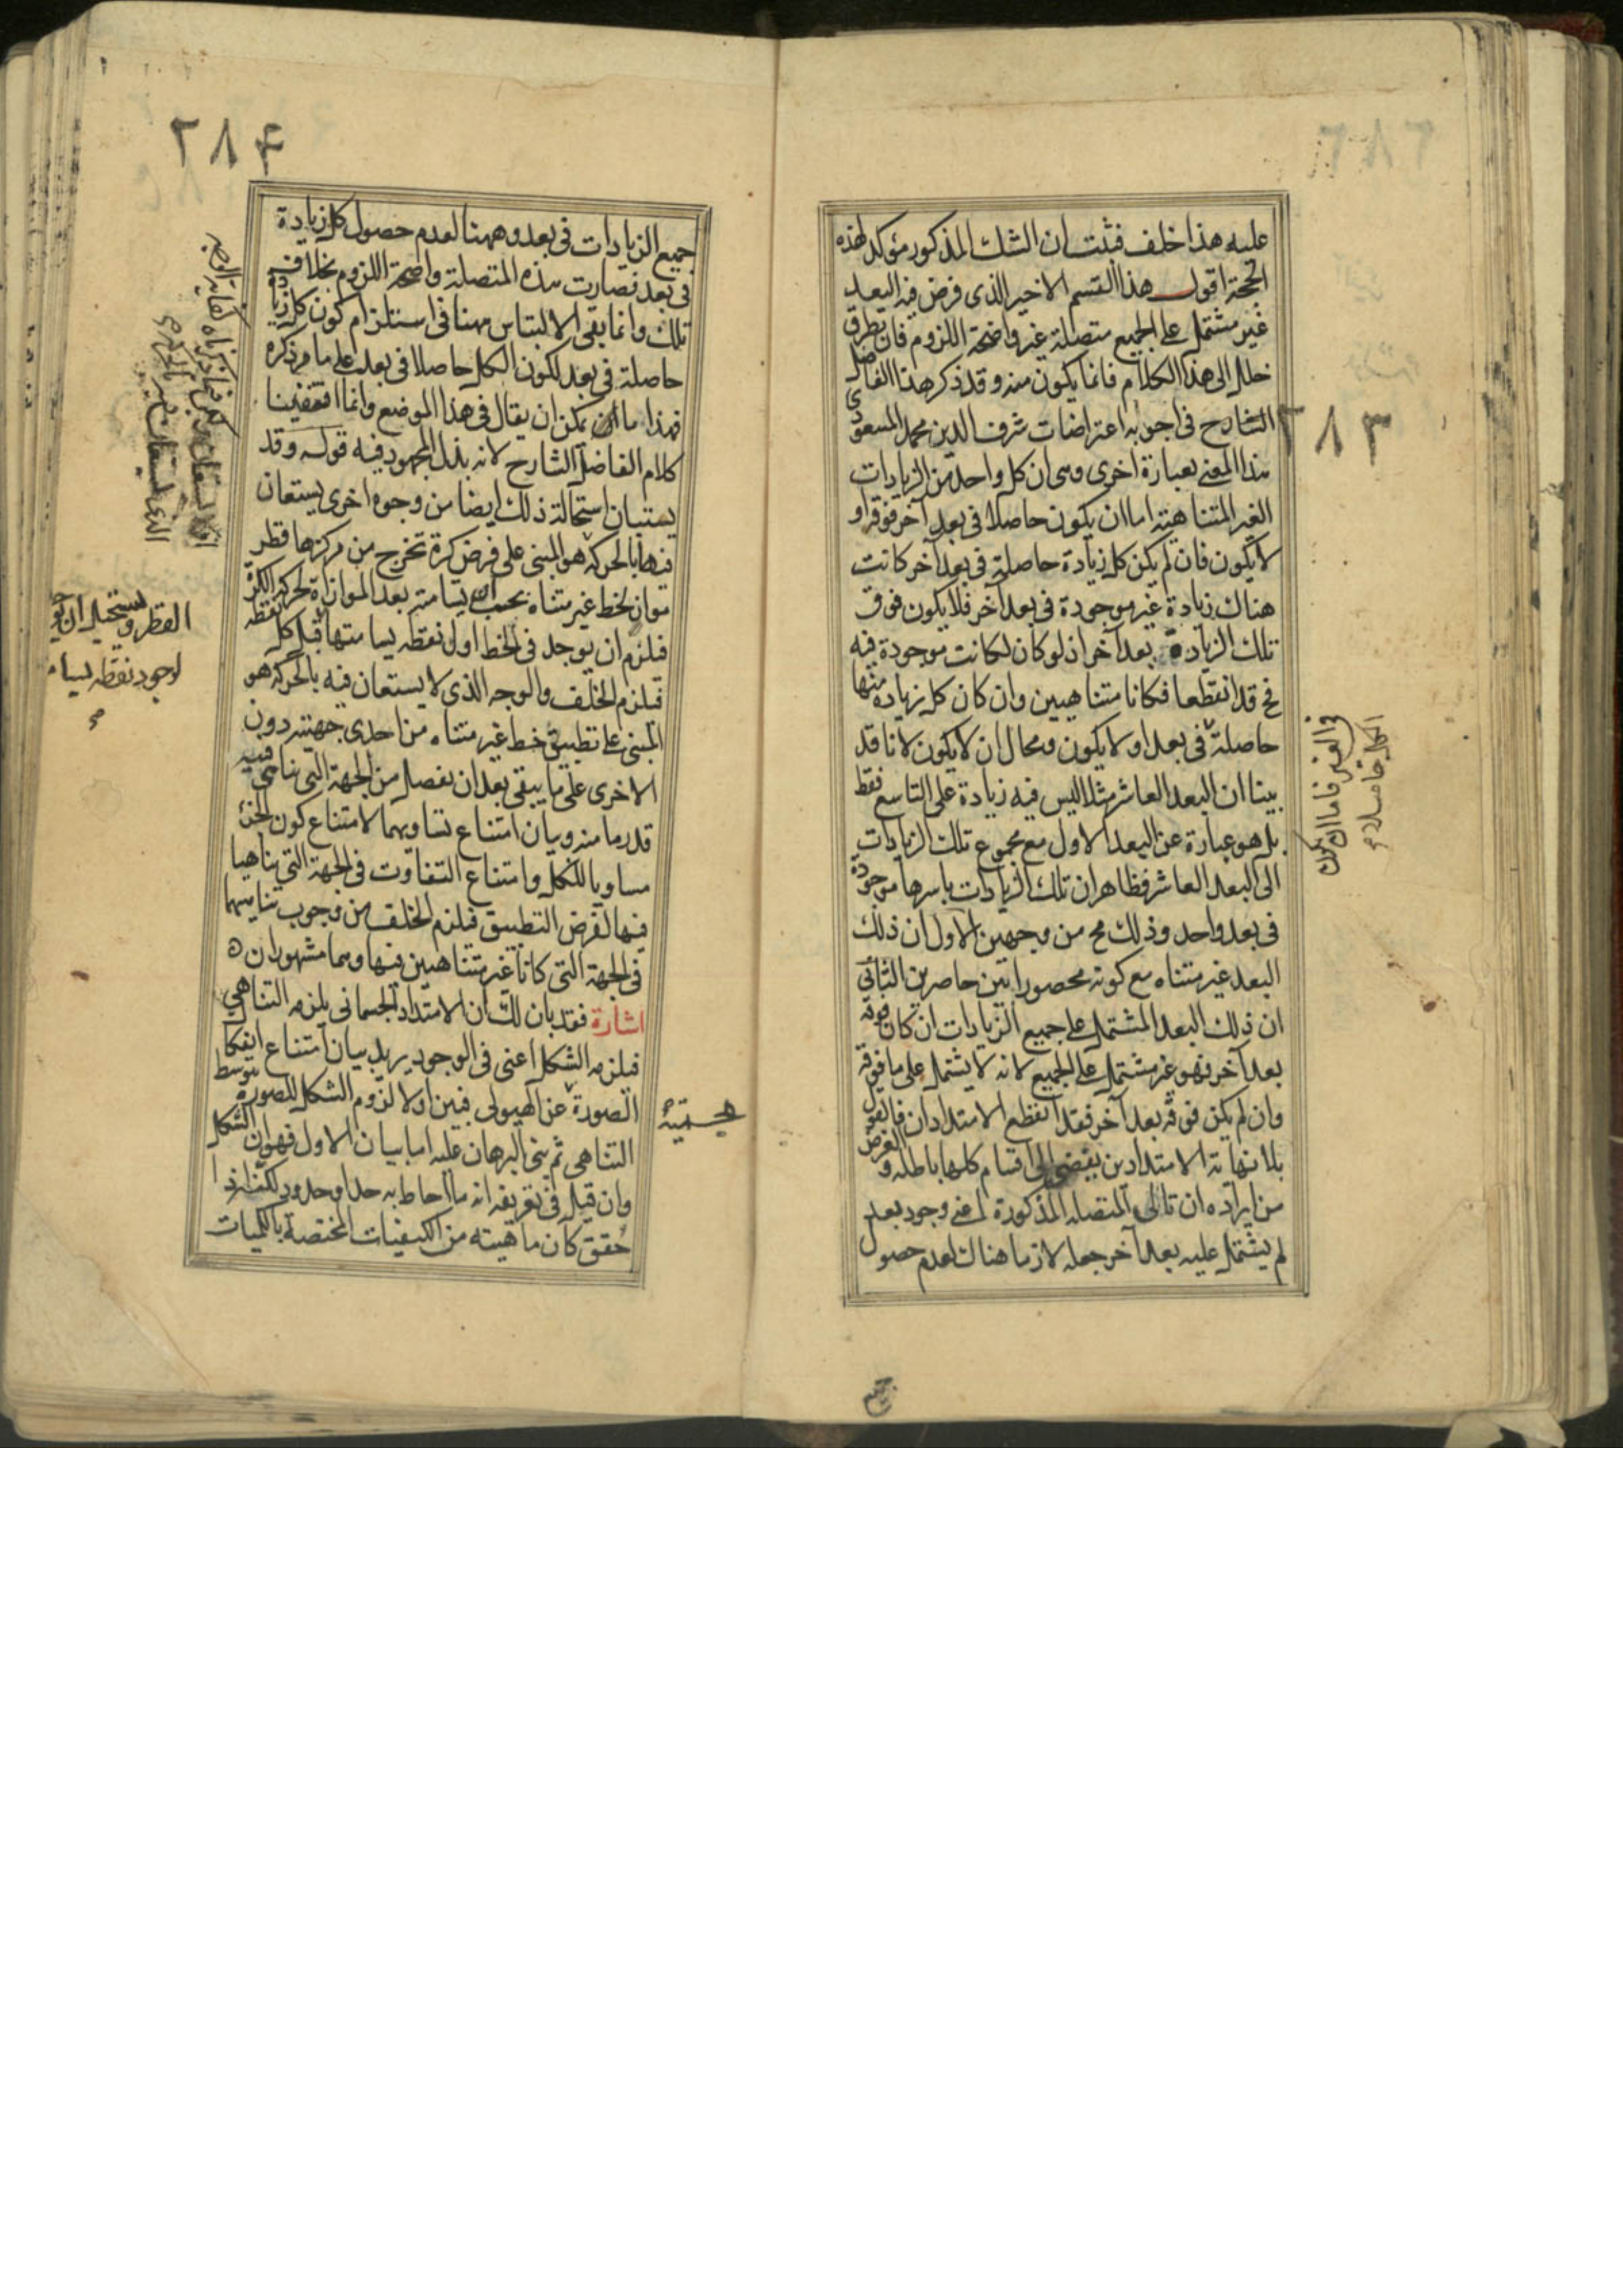 ٢٨٣
عليه هذا خلف فثبت ان الشك المذكور مؤكد لهذه
الحجة اقول هذا القسم الاخير الذى فرض فيه البعد
غير مشتمل على الجميع متصلة غير واضحة اللزوم فان يطرق
خلل الى هذا الكلام فانما يكون منه وقد ذكر هذا الفاضل
الشارح فى اجوبة اعتراضات شرف الدين محمد المسعودى
هذا المعنى بعبارة اخرى وهى ان كل واحد من الزيادات
الغير المتناهية اما ان يكون حاصلا فى بعد آخر فوقه او
لا يكون فان لم يكن كل زيادة حاصلة فى بعد آخر كانت
هناك زيادة غير موجودة فى بعد آخر فلا يكون فوق
تلك الزيادة بعد آخر اذ لو كان لكانت موجودة فيه
فح قد انقطعا فكانا متناهيين وان كان كل زيادة منها
حاصلة فى بعد او لا يكون ومحال ان لا يكون لانا قد
بينا ان البعد العاشر مثلا ليس فيه زيادة على التاسع فقط
بل هو عبارة عن البعد الاول مع مجموع تلك الزيادات
الى البعد العاشر فظاهر ان تلك الزيادات باسرها موجودة
فى بعد واحد وذلك مح من وجهين الاول ان ذلك
البعد غير متناه مع كونه محصورا بين حاصرين الثانى
ان ذلك البعد المشتمل على جميع الزيادات ان كان فوقه
بعد آخر فهو غير مشتمل على الجميع لانه لا يشتمل على ما فوقه
وان لم يكن فوقه بعد آخر فقد انقطع الامتدادان فالقول
بلا نهاية الامتدادين يفضى الى اقسام كلها باطلة والغرض
من ايراده ان تالى المتصلة المذكورة اعنى وجود بعد
لم يشتمل عليه بعد آخر جعله لازما هناك لعدم حصول
جميع
٢٨٤
جميع الزيادات فى بعد وههنا لعدم حصول كل زيادة
فى بعد فصارت هذه المتصلة واضحة اللزوم بخلاف
تلك وانما بقى الالتباس ههنا فى استلزام كون كل زيادة
حاصلة فى بعد لكون الكل حاصلا فى بعد على ما مر ذكره
فهذا ما يمكن ان يقال فى هذا الموضع وانما اقتفينا
كلام الفاضل الشارح لانه بذل المجهود فيه قوله وقد
يستبان استحالة ذلك ايضا من وجوه اخرى يستعان
فيها بالحركة هو المبنى على فرض كرة تخرج من مركزها قطر
مواز لخط غير متناه يجب ان يسامته بعد الموازاة لحركة الكرة
فيلزم ان يوجد فى الخط اول نقطه يسامتها قبل كل نقطه
فيلزم الخلف والوجه الذى لا يستعان فيه بالحركة هو
المبنى على تطبيق خط غير متناه من احدى جهتيه دون
الاخرى على ما يبقى بعد ان يفصل من الجهة التى تناهى فيه
قدر ما منه وبيان امتناع تساويهما لامتناع كون الجزء
مساويا للكل وامتناع التفاوت فى الجهة التى تناهيا
فيها لفرض التطبيق فيلزم الخلف من وجوب تناهيهما
فى الجهة التى كانا غير متناهيين فيها وهما مشهوران ه
اشارة فقد بان لك ان الامتداد الجسمانى يلزمه التناهى
فيلزمه الشكل اعنى فى الوجود يريد بيان امتناع انفكاك
الصورة عن الهيولى فبين اولا لزوم الشكل للصورة بتوسط
التناهى ثم بنى البرهان عليه اما بيان الاول فهو ان الشكل
وان قيل فى تعريفه انه ما احاط به حد او حدود لكنه اذا
حقق كان ماهيته من الكيفيات المختصة بالكميات
القطر ويستحيل ان يو
لوجود نقطه يسا
الجسمية